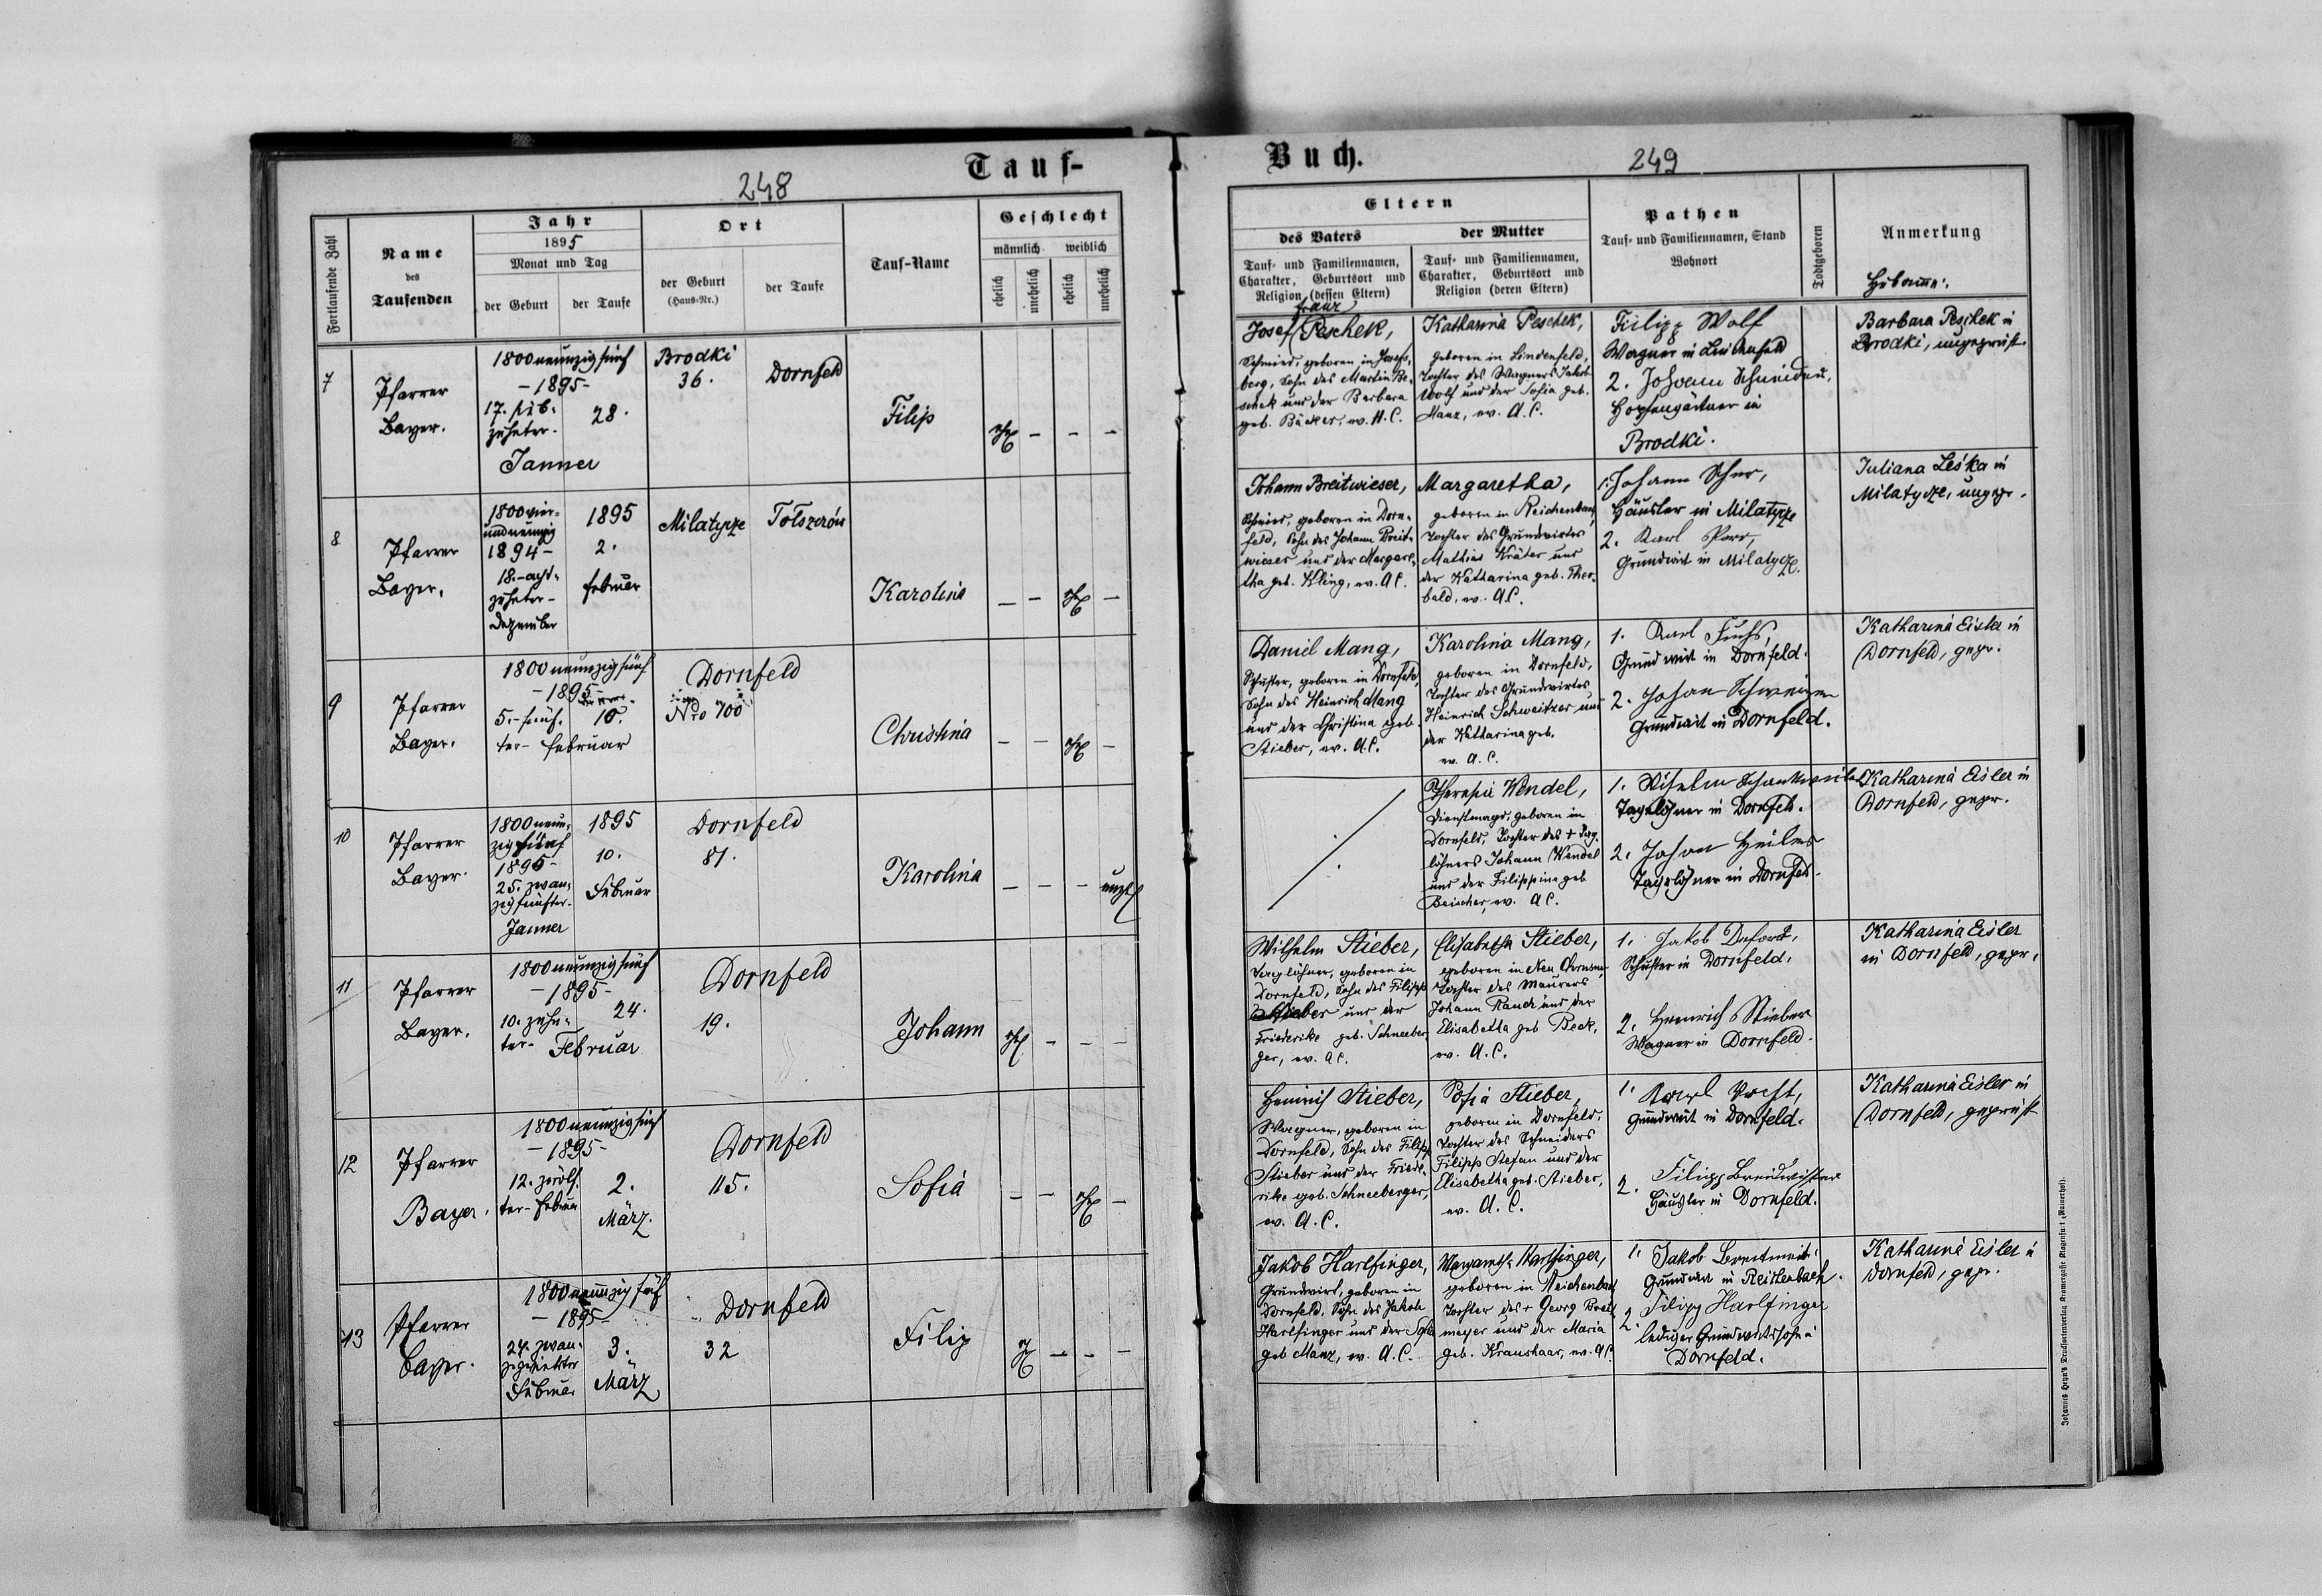 248
Tauf-
Fortlaufende Zahl
Name
des
Taufenden
Jahr
1895
Monat und Tag
der Geburt
der Taufe
Ort
der Geburt
(Haus-Nr.)
der Taufe
Tauf-Name
Geschlecht
männlich
weiblich
ehelich
unehelich
ehelich
unehelich
7
Pfarrer
Bayer.
1800 neunzig fünf
- 1895 -
17. sieb-
zehnter
28.
Janner
Brodki
36.
Dornfeld
Filip
8
Pfarrer
Bayer.
1800 vier-
undneunzig
1894 -
18. - acht-
zehnter -
Dezember
1895
2.
Februar
Milatycze
Tolszczów
Karolina
9
Pfarrer
Bayer.
1800 neunzig fünf
- 1895 -
5. - fünf-
10.
ter - Februar
Dornfeld
Nro 700
Christina
10
Pfarrer
Bayer.
1800 neun-
zig fünf
1895 -
25. zwan-
zig fünfter -
Janner
1895
10.
Februar
Dornfeld
81.
Karolina
unehel
11
Pfarrer
Bayer.
1800 neunzig fünf
- 1895 -
10. zehn-
24.
ter - Februar
Dornfeld
19.
Johann
12
Pfarrer
Bayer.
1800 neunzig fünf
- 1895 -
12. zwölf-
ter - Februar
2.
März.
Dornfeld
115.
Sofia
13
Pfarrer
Bayer.
1800 neunzig fünf
- 1895 -
24. zwan-
zigvierter
Februar
3.
März
Dornfeld
32
Filip
Buch.
249
Eltern
des Vaters
Tauf- und Familiennamen,
Charakter, Geburtsort und
Religion (dessen Eltern)
der Mutter
Tauf- und Familiennamen,
Charakter, Geburtsort und
Religion (deren Eltern)
Pathen
Tauf- und Familiennamen, Stand
Wohnort
Todtgeboren
Anmerkung
Hebamme:
Josef Peschek,
Schmied, geboren in Josefs-
berg, Sohn des Martin Pe-
schek und der Barbara
geb. Bäcker, ev. H. C.
Katharina Peschek,
geboren in Lindenfeld,
Tochter des Wagners Jakob
Wolf und der Sofia geb.
Manz, ev. A. C.
Filipp Wolf
Wagner in Lindenfeld
2. Johann Schneider,
Hopfengärtner in
Brodki.
Barbara Peschek in
Brodki, ungeprüft.
Johann Breitwieser,
Schmied, geboren in Dorn-
feld, Sohn des Johann Breit-
wieser und der Margare-
tha geb. Kling, ev. A. C.
Margaretha,
geboren in Reichenbach,
Tochter des Grundwirtes
Mathias Kräter und
der Katharina geb. Theo-
bald, ev. A. C.
1. Johann
Häusler in Milatycze
2. Karl
Grundwirt in Milatycze.
Juliana Leśka in
Milatycze, ungepr.
Daniel Mang,
Schuster, geboren in Dornfeld,
Sohn des Heinrich Mang
und der Christina geb.
Stieber, ev. A. C.
Karolina Mang,
geboren in Dornfeld,
Tochter des Grundwirtes
Heinrich Schweitzer und
der Katharina geb.
ev. A. C.
1. Karl Fuchs,
Grundwirt in Dornfeld.
2. Johan
Grundwirt in Dornfeld.
Katharina Eisler in
Dornfeld, gepr.
Theresia Wendel,
Dienstmagd, geboren in
Dornfeld, Tochter des + Tag-
löhners Johann Wendel
und der Filippine geb
Beischer, ev. A C.
1. Wihelm
Tagelöhner in Dornfeld.
2. Johan
Tagelöhner in Dornfeld.
Katharina Eisler in
Dornfeld, gepr.
Wilhelm Stieber,
Taglöhner, geboren in
Dornfeld, Sohn des Filipp
Stieber und der
Friederike geb. Schneeber-
ger, ev. A C.
Elisabetha Stieber,
geboren in Neu
Tochter des Maurers
Johann Rauch und der
Elisabetha geb Beck,
ev. A. C.
1. Jakob
Schuster in Dornfeld.
2. Heinrich Stieber
Wagner in Dornfeld.
Katharina Eisler
in Dornfeld, gepr.
Heinrich Stieber,
Wagner, geboren in
Dornfeld, Sohn des Filipp
Stieber und der Friede-
rike geb. Schneeberger,
ev. A. C.
Sofia Stieber,
geboren in Dornfeld,
Tochter des Schneiders
Filipp Stefan und der
Elisabetha geb. Stieber,
ev. A. C.
1. Karl
Grundwirt in Dornfeld.
2. Filipp
Häusler in Dornfeld.
Katharina Eisler in
Dornfeld, geprüft
Jakob Harlfinger,
Grundwirt, geboren in
Dornfeld, Sohn des Jakob
Harlfinger und der Sofia
geb Manz, ev. A. C.
Margareth Harlfinger,
geboren in Reichenbach
Tochter des + Georg
meyer und der Maria
geb. Kraushaar, ev. A C.
1. Jakob
Grundwirt in Reichenbach.
2. Filipp Harlfinger
lediger Grundwirtssohn in
Dornfeld.
Katharina Eisler in
Dornfeld, gepr.